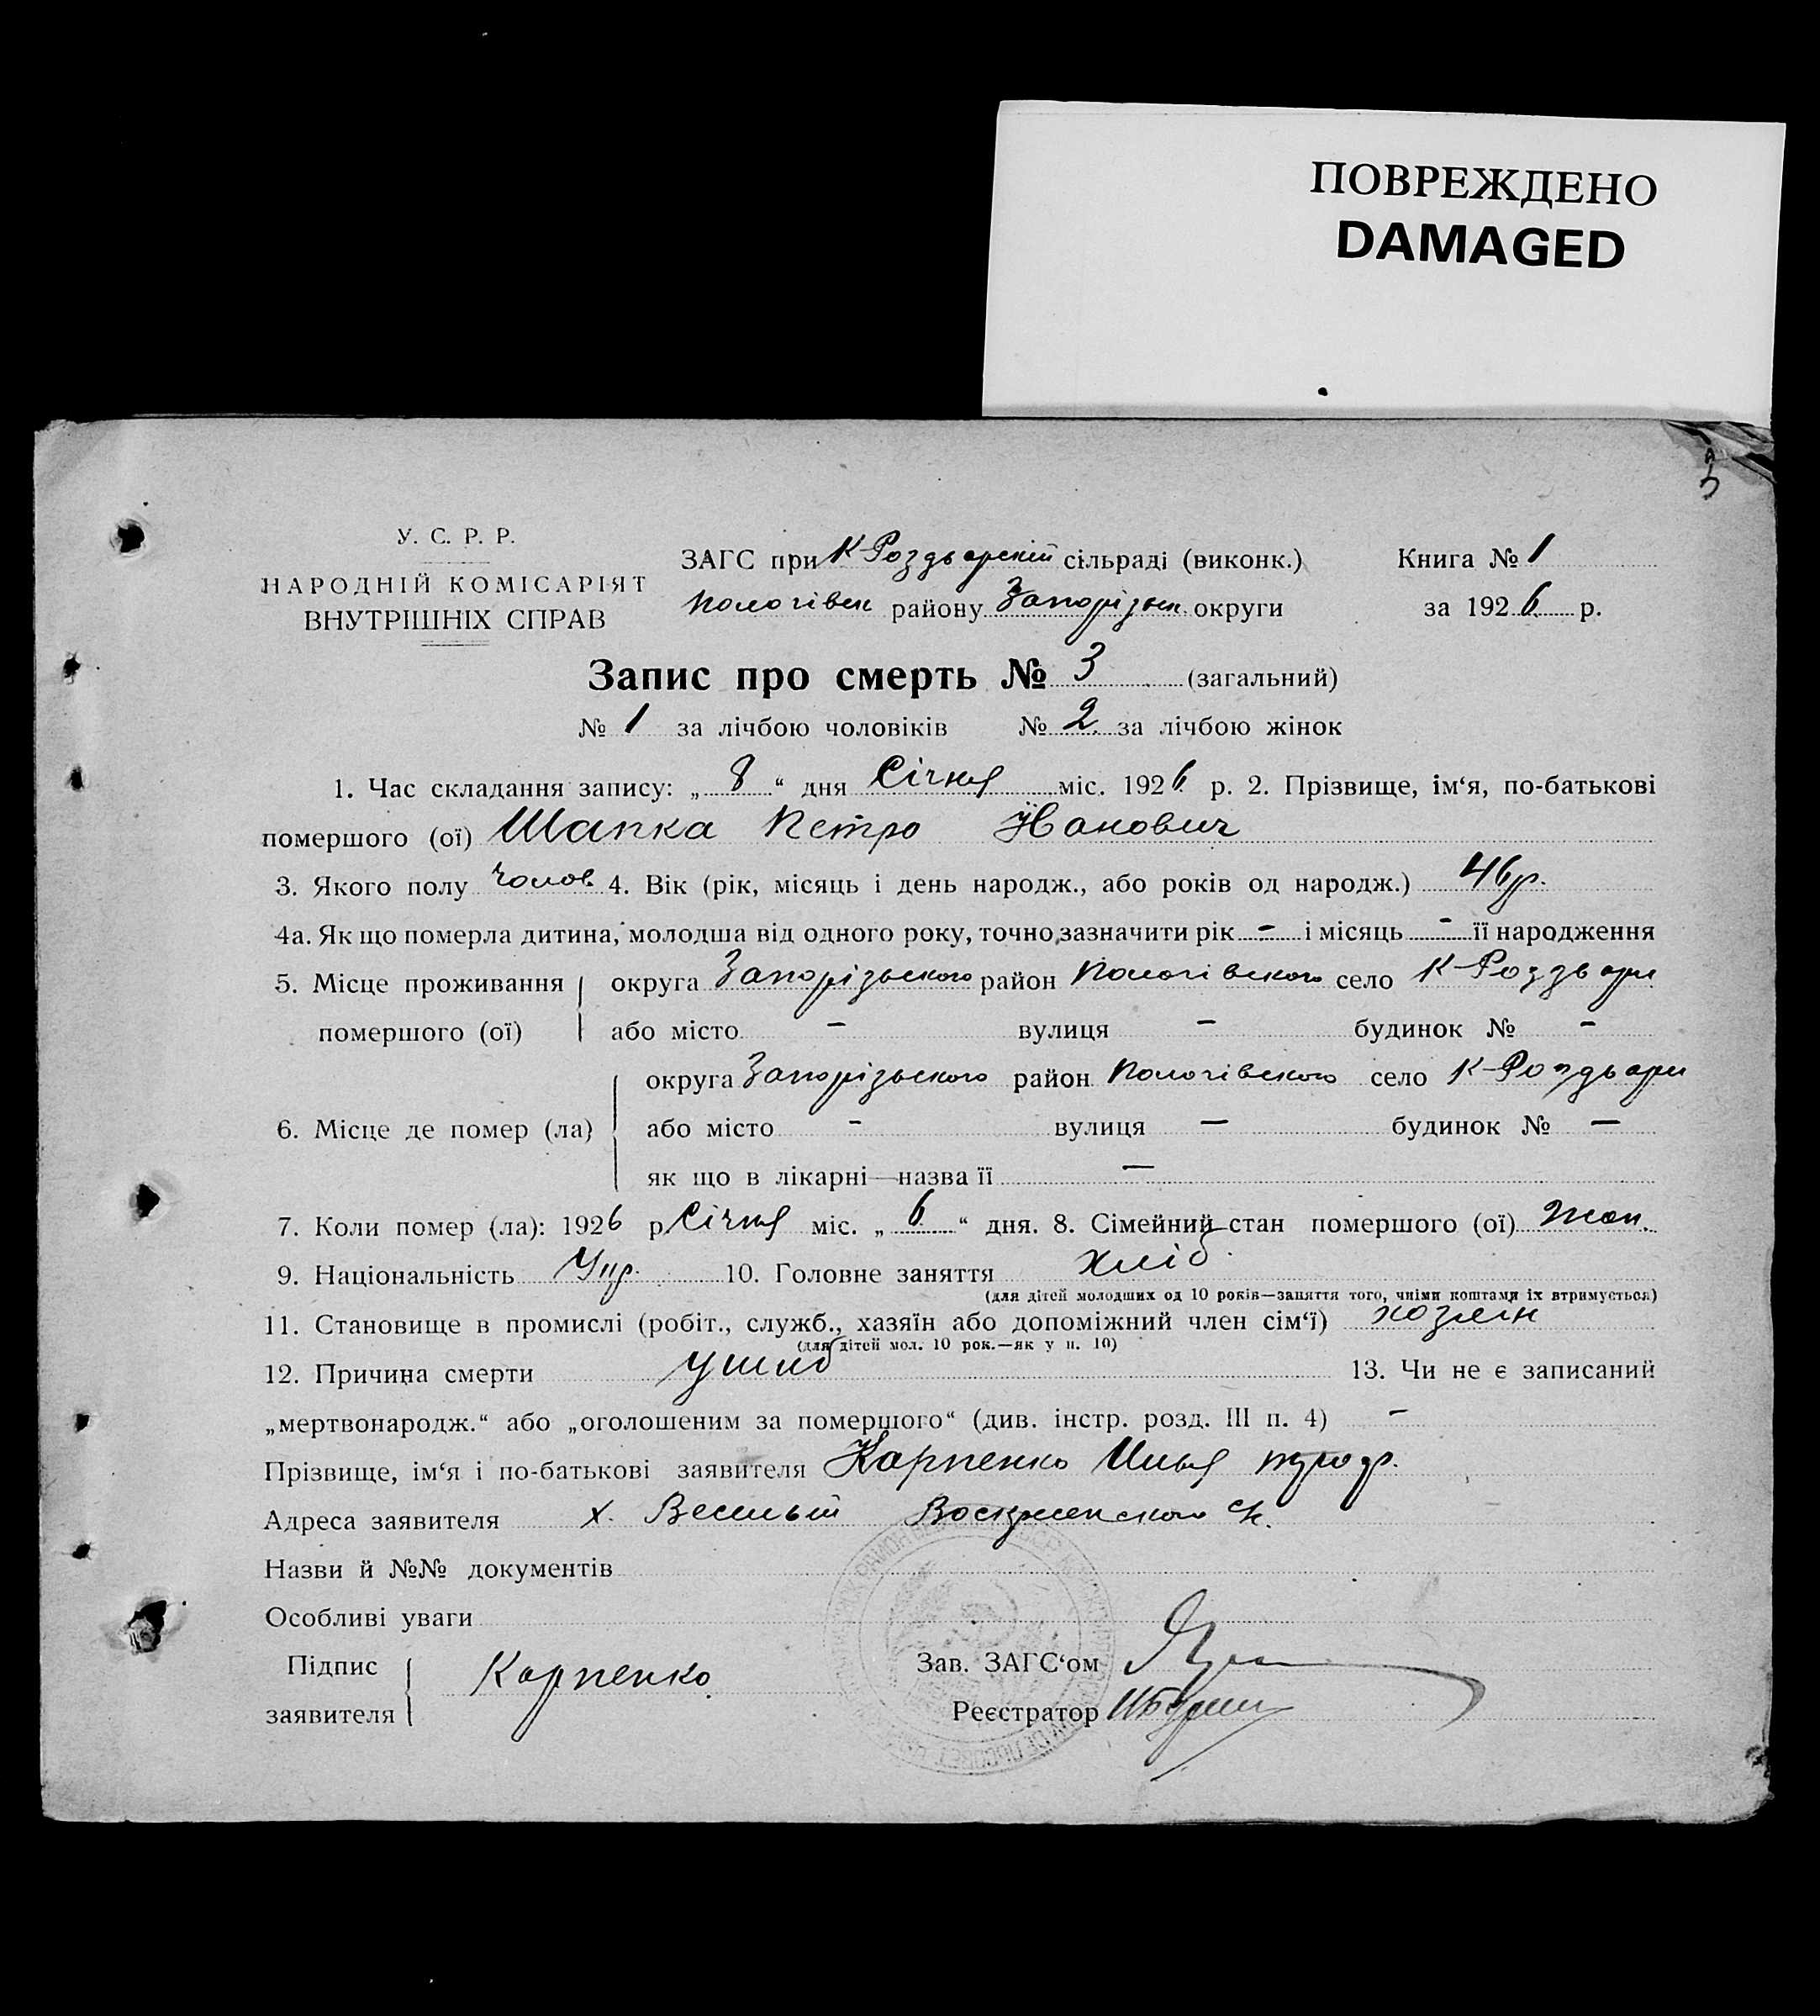 ПОВРЕЖДЕНО
DAMAGED
3
У. С. Р. Р.
НАРОДНІЙ КОМІСАРІЯТ
ВНУТРІШНІХ СПРАВ
ЗАГС при К-Роздорскій сільраді (виконк.) Книга № 1
Пологівськ району Запорізьк. округи за 1926 р.
Запис про смерть № 3 (загальний)
№ 1 за лічбою чоловіків № 2 за лічбою жінок
1. Час складання запису: „8“ дня Січня міс. 1926 р. 2. Прізвище, ім‘я, по-батькові
помершого (ої) Шапка Петро Іванович
3. Якого полу Чолов. 4. Вік (рік, місяць і день народж., або років од народж.) 46 р.
4а. Як що померла дитина, молодша від одного року, точно зазначити рік - і місяць - її народження
5. Місце проживання округа Запорізьского район Пологівского село К-Роздори
помершого (ої) або місто - вулиця - будинок № -
округа Запорізьского район Пологівского село К-Роздори
6. Місце де помер (ла) або місто - вулиця — будинок № —
як що в лікарні—назва її —
7. Коли помер (ла): 1926 р. Січня міс. „6“ дня. 8. Сімейний стан помершого (ої) жон.
9. Національність Укр. 10. Головне заняття хліб.
(для дітей молодших од 10 років—заняття того, чиїми коштами їх втримується)
11. Становище в промислі (робіт., служб., хазяїн або допоміжний член сім‘ї) хозяїн
(для дітей мол. 10 рок.—як у п. 10)
12. Причина смерти ушиб 13. Чи не є записаний
„мертвонародж.“ або „оголошеним за помершого“ (див. інстр. розд. III п. 4) -
Прізвище, ім‘я і по-батькові заявителя Карпенко Илья
Адреса заявителя х. Веселый
Назви й №№ документів
Особливі уваги
Підпис заявителя Карпенко
Зав. ЗАГС‘ом
Реєстратор